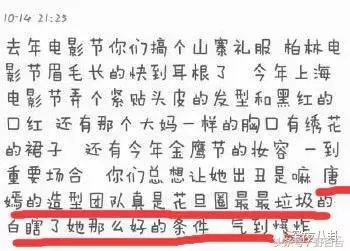 10-14 21:25
去年电影节你们搞个山寨礼服 柏林电
影节眉毛长的快到耳根了 今年上海
电影节弄个紧贴头皮的发型和黑红的
口红 还有那个大妈一样的胸口有绣花
的裙子 还有今年金鹰节的妆容 一到
重要场合 你们总想让她出丑是嘛 唐
嫣的造型团队真是花旦圈最最垃圾的
白瞎了她那么好的条件 气到爆炸